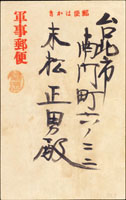 郵便はかき
軍事郵便
台北市
南門町六ノ二三
末松正男殿